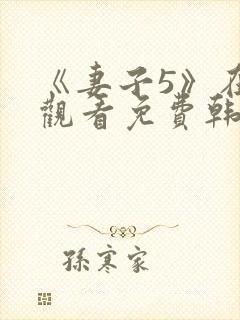 《妻子5》在
觀看免費韩
孫寒家